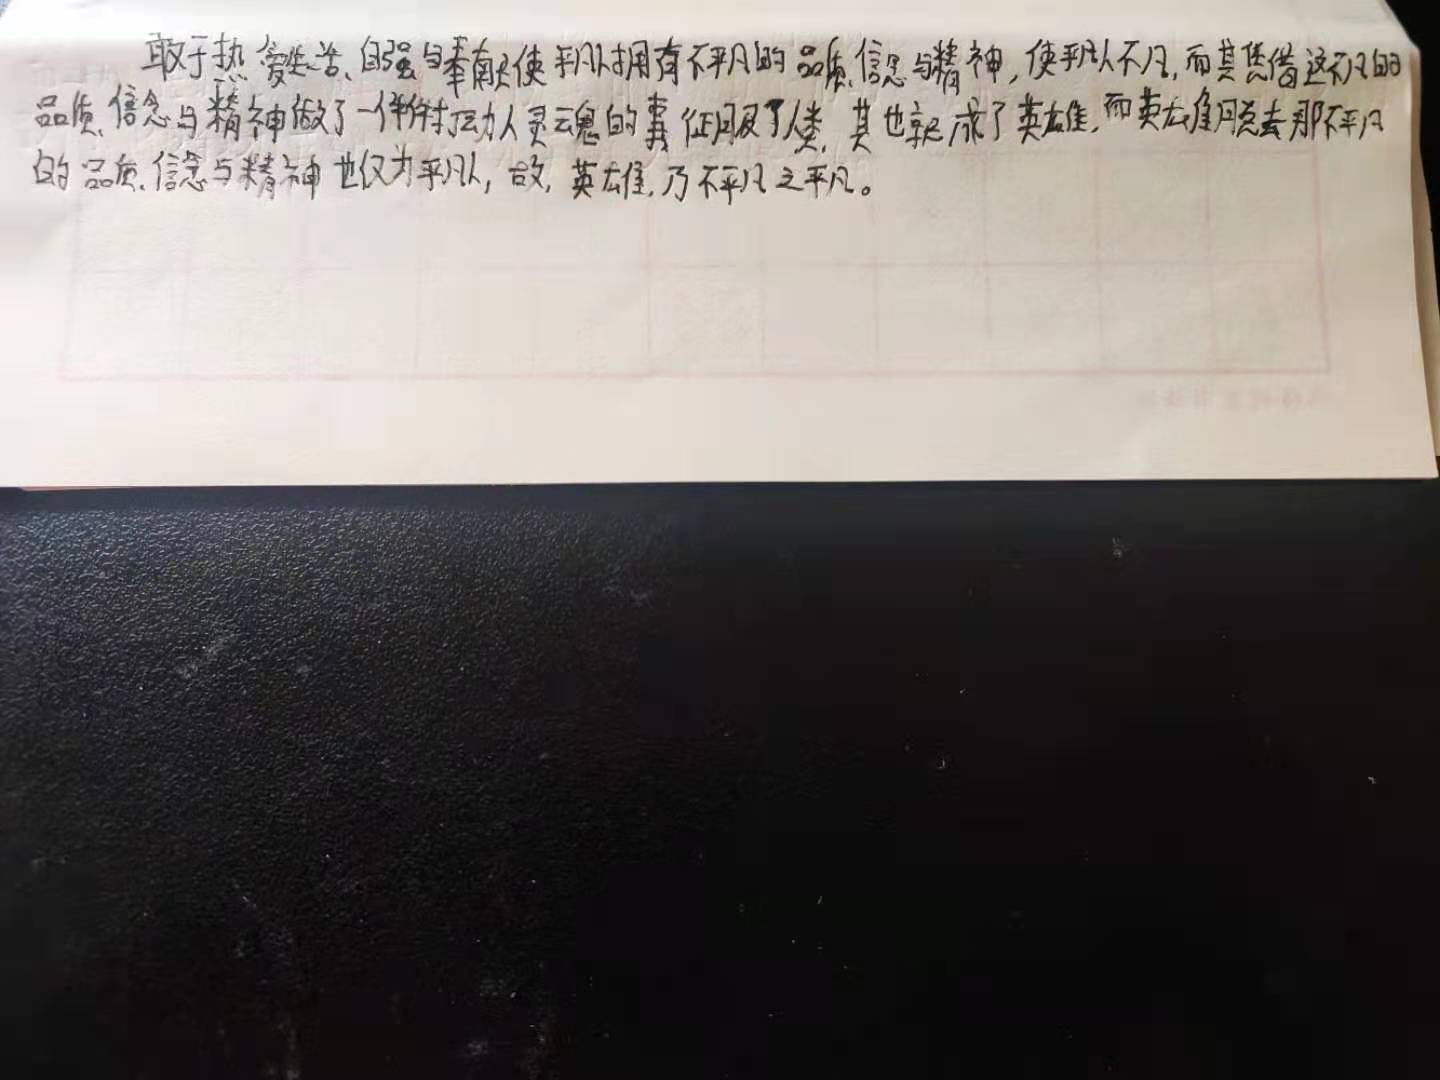 敢于热爱生活、自强与奉献使平凡人拥有不平凡的品质、信念与精神，使平凡人不凡，而其凭借这不凡的
品质、信念与精神做了一件件打动人灵魂的事 征服了人类，其也就成了英雄，而英雄脱去那不平凡
的品质、信念与精神也仅为平凡人，故，英雄，乃不平凡之平凡。